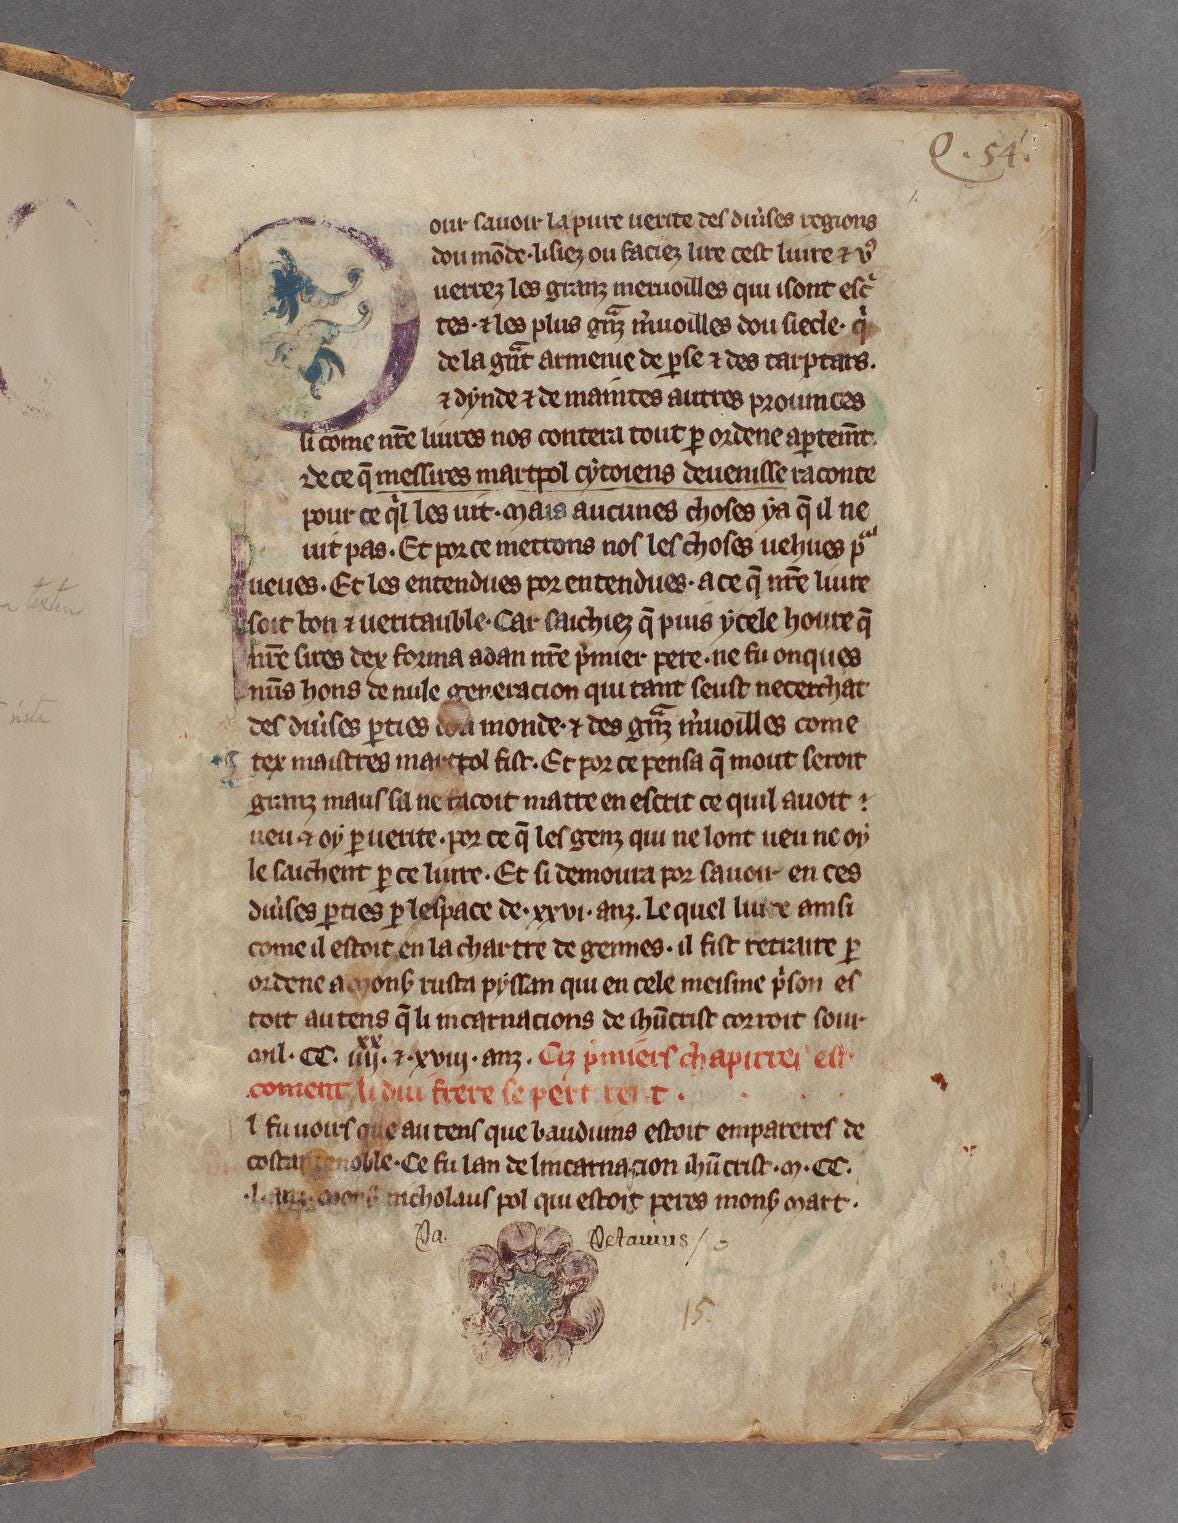 Q. 54.
our sauoir la pure uerite des diu͛ses regions
dou mo̅de · lisiez ou faciez lire cest liure ⁊ v͛
uerrez les granz meruoilles qui isont esc͛
tes · ⁊ les plus gr̅nz m͛uoilles dou siecle · q͛
de la gr̅t armenie de ꝑse ⁊ des tarptars .
⁊ dynde ⁊ de maintes autres prouinces
si come nr̅e liures nos contera tout ꝑ ordene apertem̅t .
de ce q̅ messires martpol cytoiens deuenisse raconte
pour ce q͛l les uit · Mais aucunes choses ya q̅ il ne
uit pas . Et por ce mettons nos les choses uehues p͛
ueues . Et les entendues por entendues · a ce q̅ nr̅e liure
soit bon ⁊ ueritauble · Car saichiez q̅ puis ycele houre q̅
nr̅e sires dex forma adan nr̅e p͛mier pere · ne fu onques
nu̅s hons de nule generacion qui tant seust ne cerchat
des diu͛ses ꝑties dou monde · ⁊ des gr̅nz m͛uoilles come
tex maistres martpol fist . Et por ce pensa q̅ mout seroit
granz maus sil ne facoit mattre en escrit ce quil auoit ⁊
ueu ⁊ oy ꝑ uerite · por ce q̅ les genz qui ne lont ueu ne oy
le saichent ꝑ ce liure . Et si demoura por sauoir en ces
diu͛ses ꝑties ꝑ lespace de · xxvi · anz . Le quel liure ainsi
come il estoit en la chartre de gennes · il fist retraire ꝑ
ordene a Mons̅ rusta pyssan qui en cele meisme p͛son es
toit au tens q̅ li incarnacions de ihu̅crist corroit sour
Mil · CC · iiij.xx ⁊ · xviij · anz . Ciz p͛miers chapitres est
coment li dui frere se pertirent .
l fu uoirs que au tens que bauduins estoit empareres de
costantenoble · Ce fu lan de lincarnacion ihu̅crist · M · CC .
· l · anz · Mons̅ nicholaus pol qui estoit peres mons̅ Mart .
Pa. Petauius /
15.